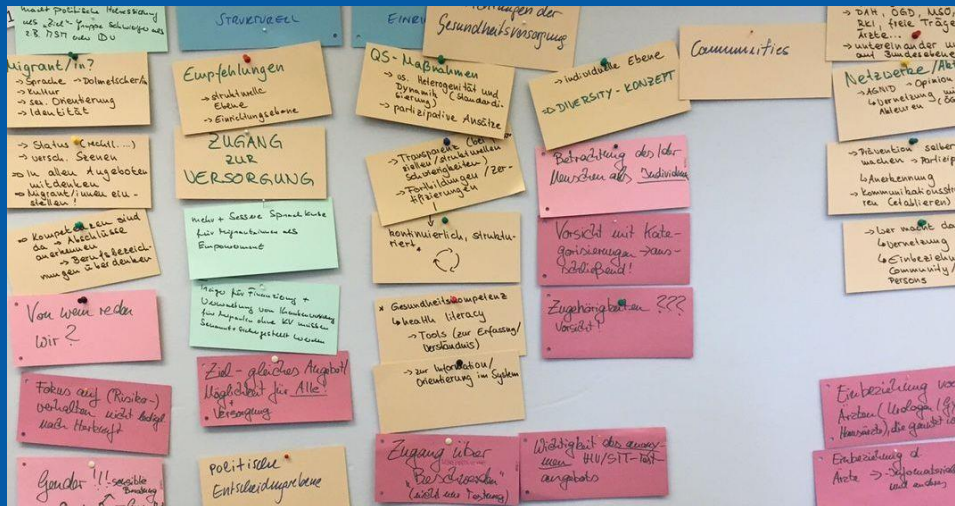 macht politische
als "Ziel"gruppe schwieriger als
z.B. MSM oder IDU
Migrant/in?
→ Sprache → Dolmetscher/in
→ Kultur
→ sex. Orientierung
→ Identität
→ Status (rechtl....)
→ versch. Szenen
→ In allen Angeboten
mitdenken
→ Migrant/innen ein-
stellen!
→ Kompetenzen sind
da → Abschlüsse
anerkennen
→ Berufsbezeich-
nungen überdenken
Von wem reden
wir?
Fokus auf (Risiko-)
verhalten nicht ledigl.
nach Herkunft
Gender!!! sensible
Beratung
STRUKTURELL
Empfehlungen
→ strukturelle
Ebene
→ Einrichtungsebene
ZUGANG
ZUR
VERSORGUNG
mehr + bessere Sprachkurse
für Migrantinnen als
Empowerment
Träger für Finanzierung +
Verwaltung von
für Migranten ohne KV müssen
werden
Ziel - gleiches Angebot/
Möglichkeit für Alle!
+
Versorgung
politische
Entscheidungsebene
EINRI
QS-Maßnahmen
→ os. Heterogenität und
Dynamik (Standardi-
sierung)
→ partizipative Ansätze
→ Transparent (bei
ziellen/strukturellen
Schwierigkeiten)
→ Fortbildungen/zer-
tifizierungen
kontinuierlich, struktu-
riert
* Gesundheitskompetenz
↳ health literacy
→ Tools (zur Erfassung/
Verständnis)
→ zur Information/
Orientierung im System
Zugang über
"Beschwerden"
(nicht nur Testung)
ungen der
Gesundheitsversorgung
→ individuelle Ebene
→ DIVERSITY-KONZEPT
Betrachtung des/der
Menschen als Individuum
Vorsicht mit Kate-
gorisierungen → aus-
schließend!
Zugehörigkeiten ???
Vorsicht!
Wichtigkeit des anony-
men HIV/STI-Test-
angebots
Communities
→ DAH, ÖGD, MSO,
RKI, freie Träger
Ärzte...
→ untereinander und
auf Bundesebene
Netzwerke/Akt
→ AGNID → Opinion
↳ Vernetzung mi
Akteuren (ÖG
→ Prävention selber
machen → Partizip
↳ Anerkennung
→ Kommunikationsstru
ren (etablieren)
→ Wer macht da
↳ Vernetzung
↳ Einbeziehun
Community/
Persons
Einbeziehung von
Ärzten (Urologen/Gy
Hausärzte), die
Einbeziehung d.
Ärzte → Infomaterial
und